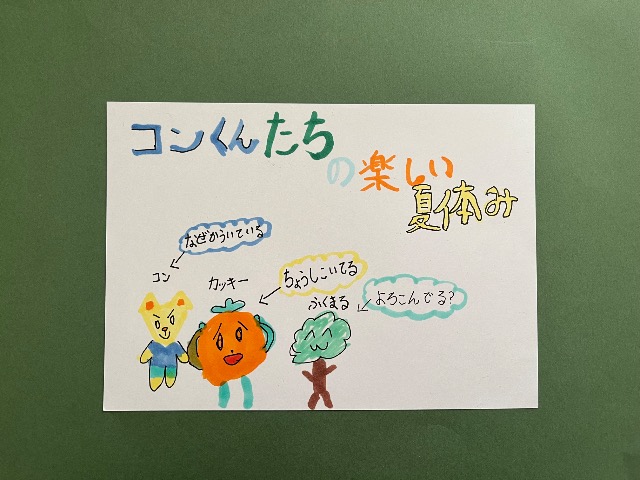 コンくんたち
の楽しい
夏休み
なぜかういている
コン
カッキー
ちょうしこいてる
ふくまる
よろこんでる?